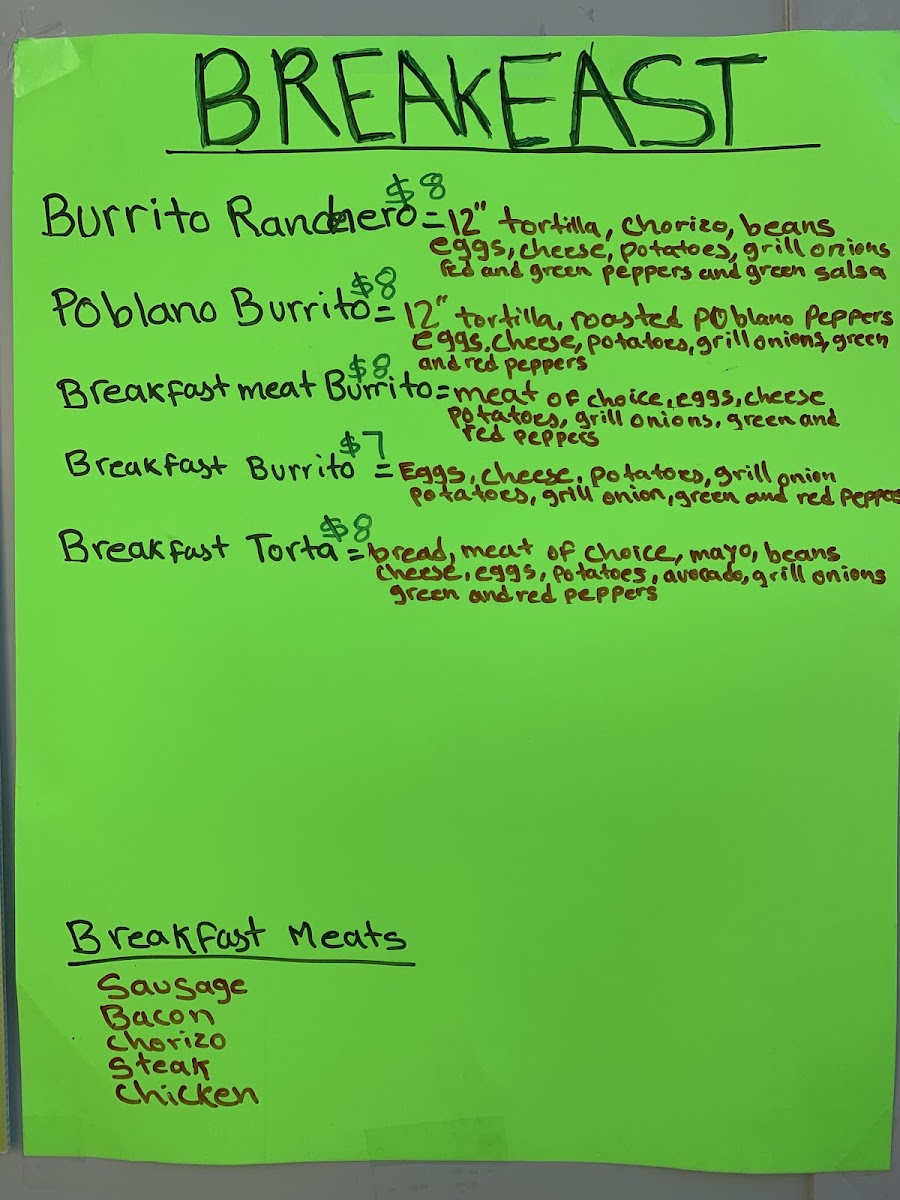 BREAKFAST
$8
Burrito Ranchero = 12" tortilla, chorizo, beans
eggs, cheese, potatoes, grill onions
red and green peppers and green salsa
$8
Poblano Burrito = 12" tortilla, roasted poblano Peppers
eggs, cheese, potatoes, grill onions, green
and red peppers
$8
Breakfast meat Burrito = meat of choice, eggs, cheese
potatoes, grill onions, green and
red peppers
$7
Breakfast Burrito = Eggs, cheese, potatoes, grill onion
potatoes, grill onion, green and red peppers
$8
Breakfast Torta = bread, meat of choice, mayo, beans
cheese, eggs, potatoes, avocado, grill onions
green and red peppers
Breakfast Meats
Sausage
Bacon
chorizo
Steak
chicken